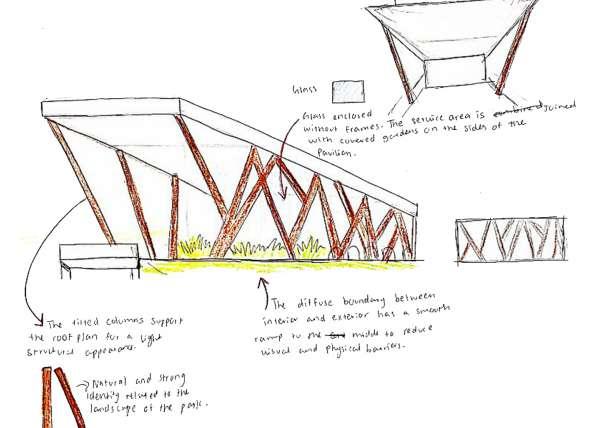 Glass
Glass enclosed
without frames. The service area is combined joined
with covered gardens on the sides of the
Pavilion.
The diffuse boundary between
interior and exterior has a smooth
ramp to the middle to reduce
visual and physical barriers.
The tilted columns support
the roof plan for a light
structural appearance.
Natural and strong
identity related to the
landscape of the park.